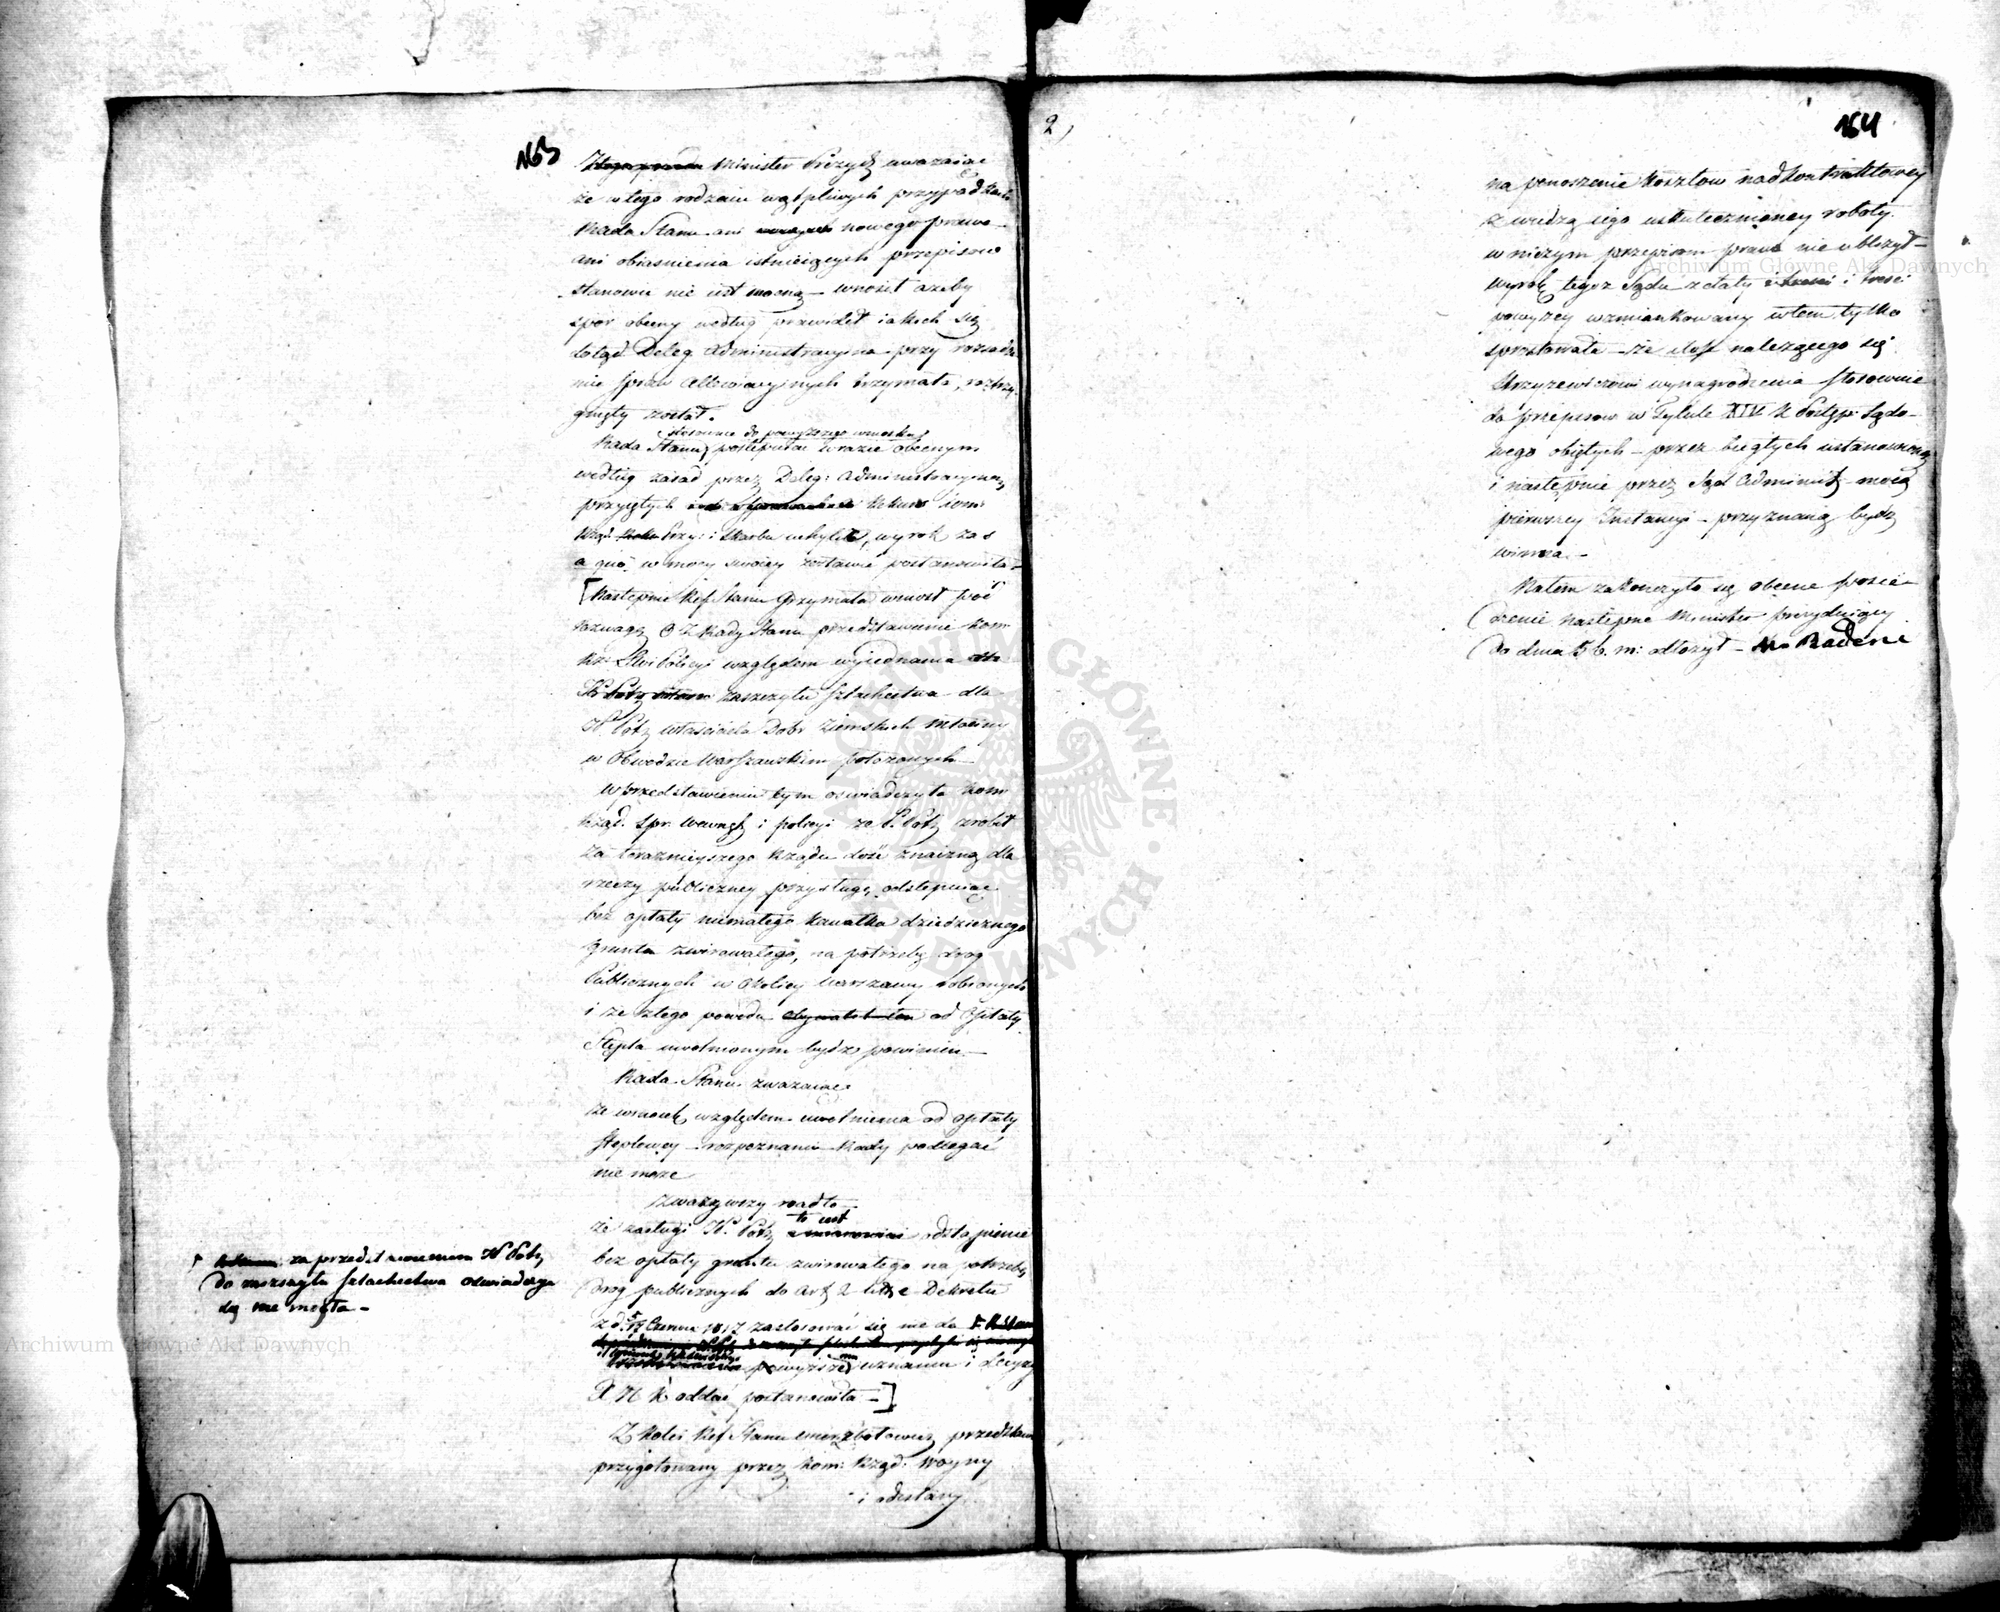 163
Minister Prezyd. uważaiąc
że w tego rodzaiu wątpliwych przypadkach
Rada Stanu ani nowego prawa
ani obiaśnienia istnieiących przepisów
stanowić nie iest mocną – wniósł ażeby
spór obecny według prawideł iakich się
dotąd Deleg. Administracyjna przy rozsądza
niu spraw trzymała, roztrzy
gnięty został.
stosownie do powyższego wniosku
Rada Stanu postępuiąc w razie obecnym
według zasad przez Deleg: Administracyjną
przyiętych rekurs Kom:
Rząd. Przy: i Skarbu uchylić, wyrok zaś
a quo w mocy swoiey zostawić postanowiła –
[Następnie Ref. Stanu Grzymała wniósł pod
rozwagę O. Z. Rady Stanu przedstawienie Kom
Rz: S. W. i Policyi względem wyiednania
zaszczytu szlachectwa dla
P. Potz właściciela Dobr Ziemskich Młociny
w Obwodzie Warszawskim położonych –
W przedstawieniu tym oświadczyła Kom
Rząd. Spr. Wewnęt. i policyi że P. Potz zrobił
za teraznieyszego Rządu dość znaczną dla
rzeczy publiczney przysługę, odstępuiąc
bez opłaty niemałego kawałka dziedzicznego
gruntu zwirowatego, na potrzeby drog
Publicznych w okolicy Warszawy robionych
i że z tego powodu od Opłaty
Stępla uwolnionym bydź powinien –
Rada Stanu zważaiąc
że wniosek względem uwolnienia od opłaty
steplowey rozpoznaniu Rady podlegać
nie może
Zważywszy nadto –
to iest
że zasługi P. Potz odstąpienie
bez opłaty gruntu zwirowatego na potrzeby
drog publicznych do Art. 2 Dekretu
z d. Czerwca 1817 zastosować się nie da
powyższe uznaniu i decyzyi
X N K oddać postanowiła –]
Z kolei Ref. Stanu przedstawił
przygotowany przez Kom: Rząd: Woyny
i odesłany
za przedstawieniem P. Potz
do zaszczytu szlachectwa oświadczyć
się nie mogła –
2,
164
na ponoszenie kosztow nadkontraktowey
z wiedzą iego uskutecznioney roboty
w niczym przepisom prawa nie ubliżył –
wyrok tegoż Sądu z daty i treści
powyżey wzmiankowany w tem tylko
sprostowała – że ilość należącego się
wynagrodzenia stosownie
do przepisow w Tytule XIV K. Postęp: Sądo-
wego obiętych – przez biegłych ustanowioną
i następnie przez Sąd Administ. mocą
pierwszey Instancyi – przyznaną bydź
winna –
Natem zakończyło się obecne posie-
dzenie następne Minister prezyduiący
do dnia 15 b. m: odłożył – M. Badeni
Archiwum Główne Akt Dawnych
Archiwum Główne Akt Dawnych
ARCHIWUM GŁÓWNE AKT DAWNYCH